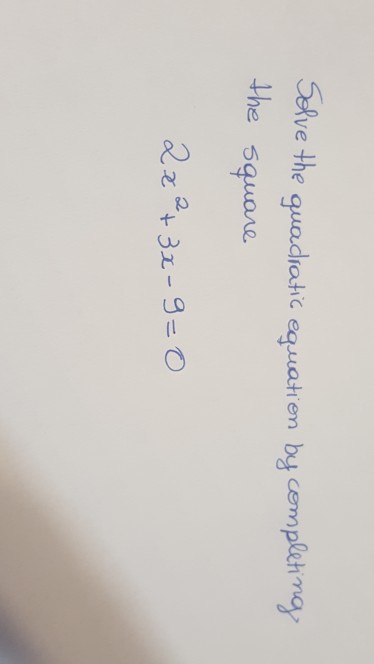 Solve the quadratic equation by completing
the square
2x² + 3x - 9 = 0